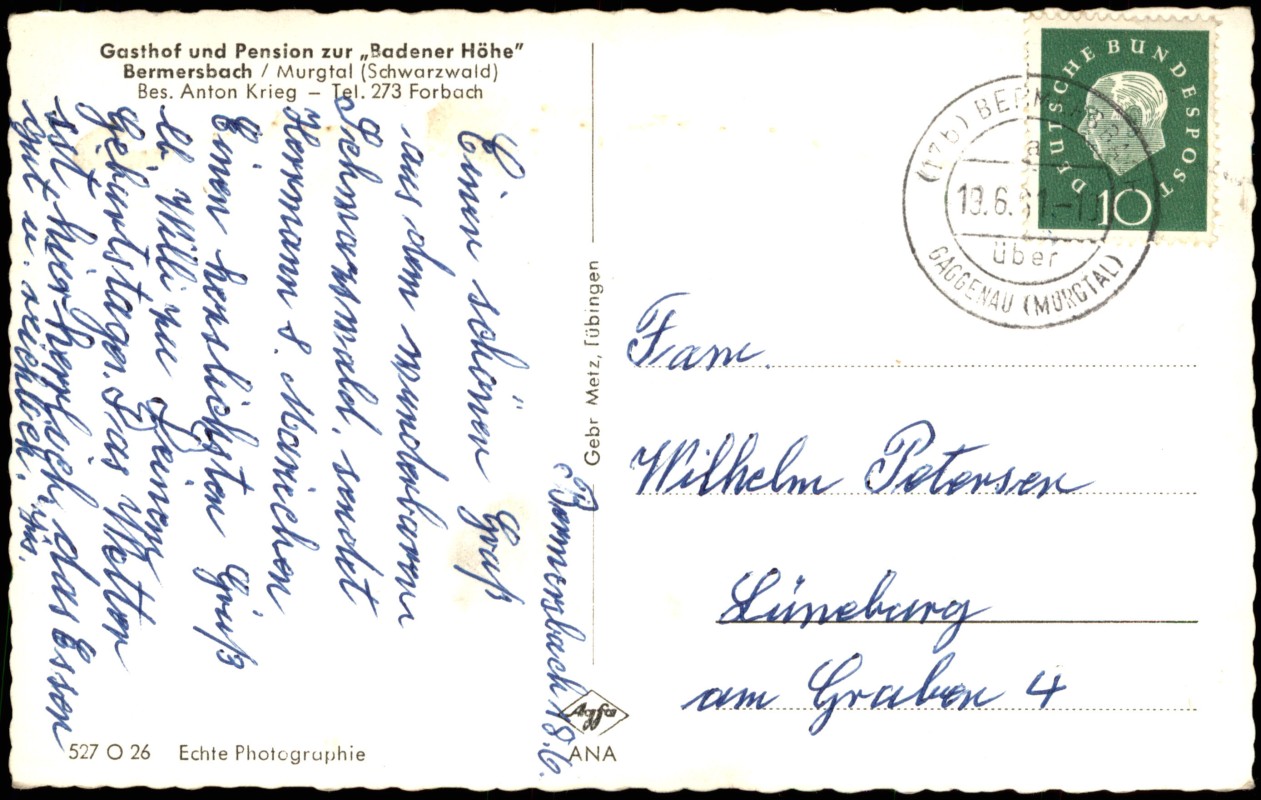 Gasthof und Pension zur „Badener Höhe"
Bermersbach / Murgtal (Schwarzwald)
Bes. Anton Krieg – Tel. 273 Forbach
Bermersbach 18.6.
Einen schönen Gruß
aus dem wunderbaren
Schwarzwald, sendet
Hermann u. Mariechen
Einen herzlichsten Gruß
lb Willi zu Deinem
Geburtstagen. Das Wetter
ist hier herrlich, das Essen
gut u. reichlich.
527 O 26 Echte Photographie
Gebr Metz, Tübingen
Agfa
ANA
DEUTSCHE BUNDESPOST
10
(17b) BERMERSBACH
a
19.6.61.-1
über
GAGGENAU (MURGTAL)
Fam.
Wilhelm Petersen
Lüneburg
am Graben 4